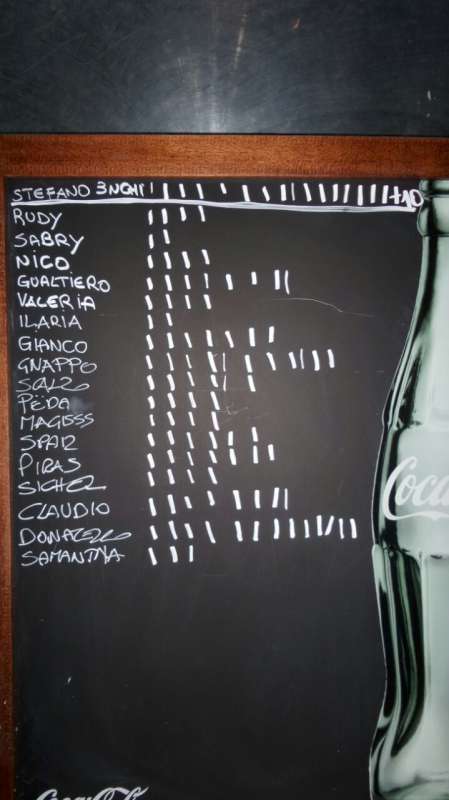 STEFANO 3NCHI | | | | | | | | | | | | | | | | | +10
RUDY | | | |
SABRY | |
NICO | | | |
GUALTIERO | | | | | | | |
VALERIA | | | |
ILARIA | |
GIANCO | | | | | | |
GNAPPO | | | | | | | | | | |
SCALZO | | | | | |
PËDA | | | |
MAGESSS | | | |
SPAIR | | | | | |
PIRAS | | | | | | |
SICHEL | | | |
CLAUDIO | | | | | | | |
DONATELLO | | | | | | | | | | | |
SAMANTHA | | |
Coca
Coca-Col